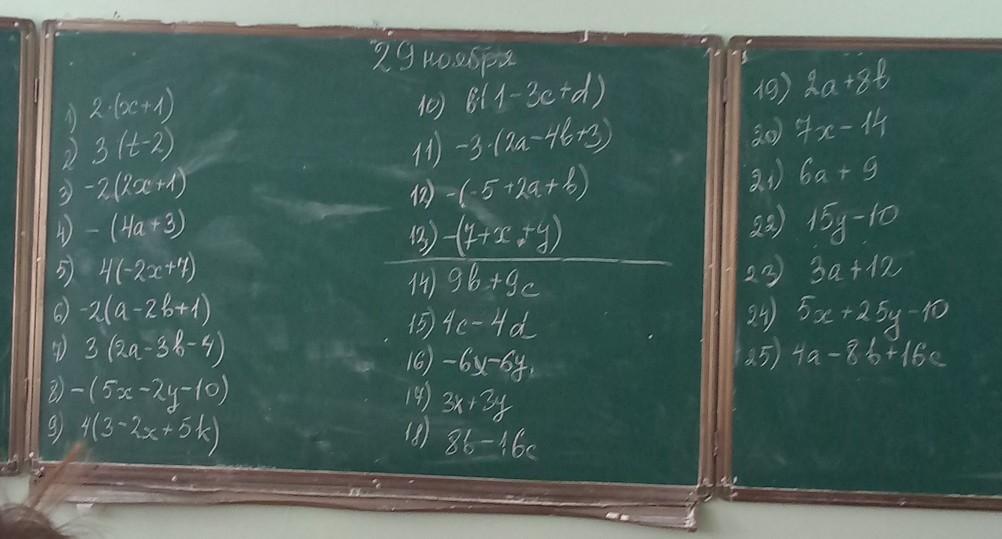 29 ноября
1) 2·(x+1)
2) 3(t-2)
3) -2(2x+1)
4) -(4a+3)
5) 4(-2x+7)
6) -2(a-2b+1)
7) 3(2a-3b-4)
8) -(5x-2y-10)
9) 4(3-2x+5k)
10) 6·(1-3c+d)
11) -3·(2a-4b+3)
12) -(-5+2a+b)
13) -(7+x+y)
14) 9b+9c
15) 4c-4d
16) -6x-6y
17) 3x+3y
18) 8b-16c
19) 2a+8b
20) 7x-14
21) 6a+9
22) 15y-10
23) 3a+12
24) 5x+25y-10
25) 4a-8b+16c